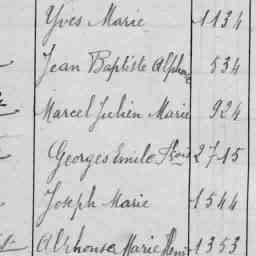 Yves Marie 1134
Jean Baptiste Alphonse 534
Marcel Julien Marie 924
Georges Emile Frois 2715
Joseph Marie 1544
Alphonse Marie Henri 1353